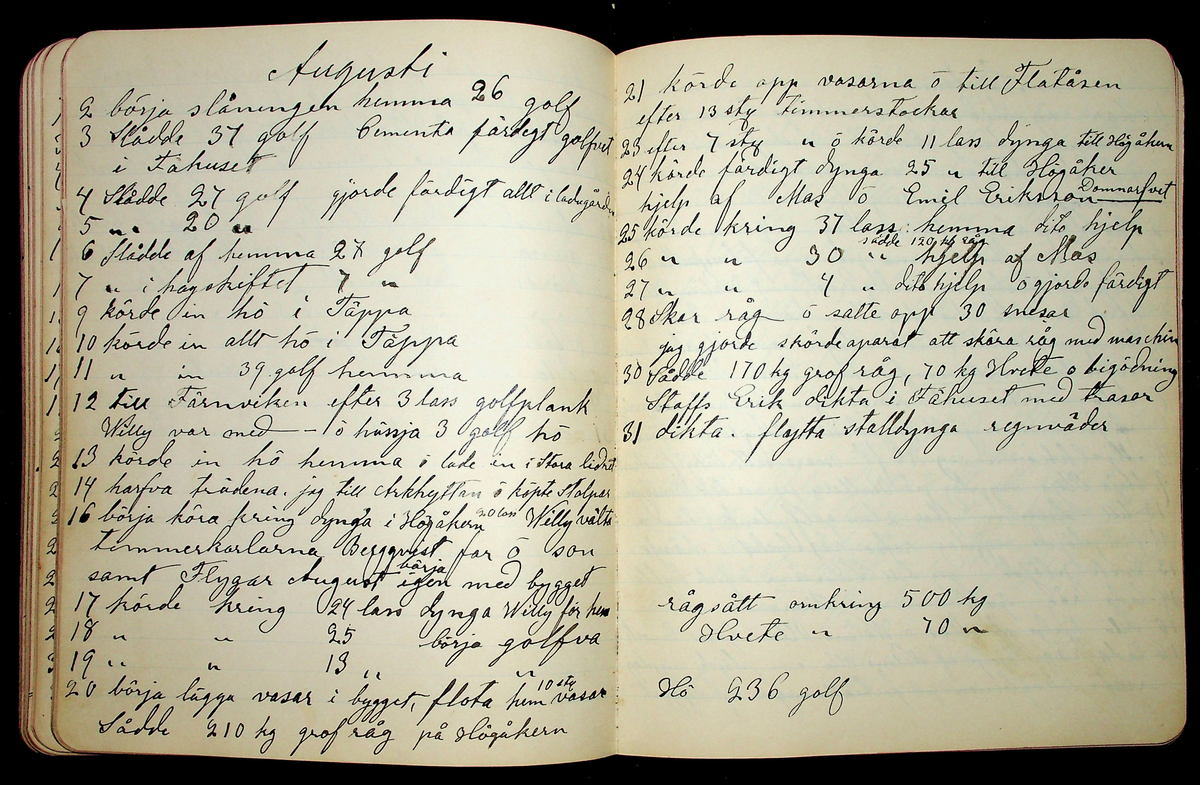 Augusti
2 börja slåningen hemma 26 golf
3 Slådde 37 golf Cementa färdigt golfvet
i Fähuset
4 Slådde 27 golf gjorde färdigt allt i ladugården
5 " 20 "
6 Slådde af hemma 27 golf
7 " i hagskiftet 7 "
9 körde in hö i Täppa
10 körde in allt hö i Täppa
11 " in 39 golf hemmma
12 till Färnviken efter 3 lass golfplank
Willy var med – ö hässja 3 golf hö
13 körde in hö hemma ö lade in i Stora lidret
14 harfva trädena. jag till Arkhyttan ö köpte Stolpar
16 börja köra kring dynga i Högåkern 20 lass Willy välta
timmerkarlarna Bergqvist far ö son
samt Flygar August börja igen med bygget
17 körde kring 24 lass dynga Willy for hem
18 " " 25 börja golfva
19 " " 13 " "
20 börja lägga vasar i bygget, flota hem 10 sty vasar
Sådde 210 kg grof råg på Högåkern
21 körde opp vasarna ö till Flatåsen
efter 13 sty timmerstockar
23 efter 7 sty " ö körde 11 lass dynga till Högåkern
24 körde färdigt dynga 25 " till Högåker
hjelp af Mas ö Emil Eriksson Domnarfvet
25 körde kring 37 lass hemma dito hjelp
26 " " 30 " sådde 120 kg råg hjelp af Mas
27 " " 4 " dito hjelp ö gjorde färdigt
28 Skar råg ö satte opp 30 snesar
jag gjorde skördeaparat att skära råg med maschin
30 Sådde 170 kg grof råg, 70 kg Hvete o bigödning
Staffs Erik dikta i Fähuset med trasor
31 dikta. flytta stalldynga regnväder
råg sått omkring 500 kg
Hvete " 70 "
Hö 236 golf